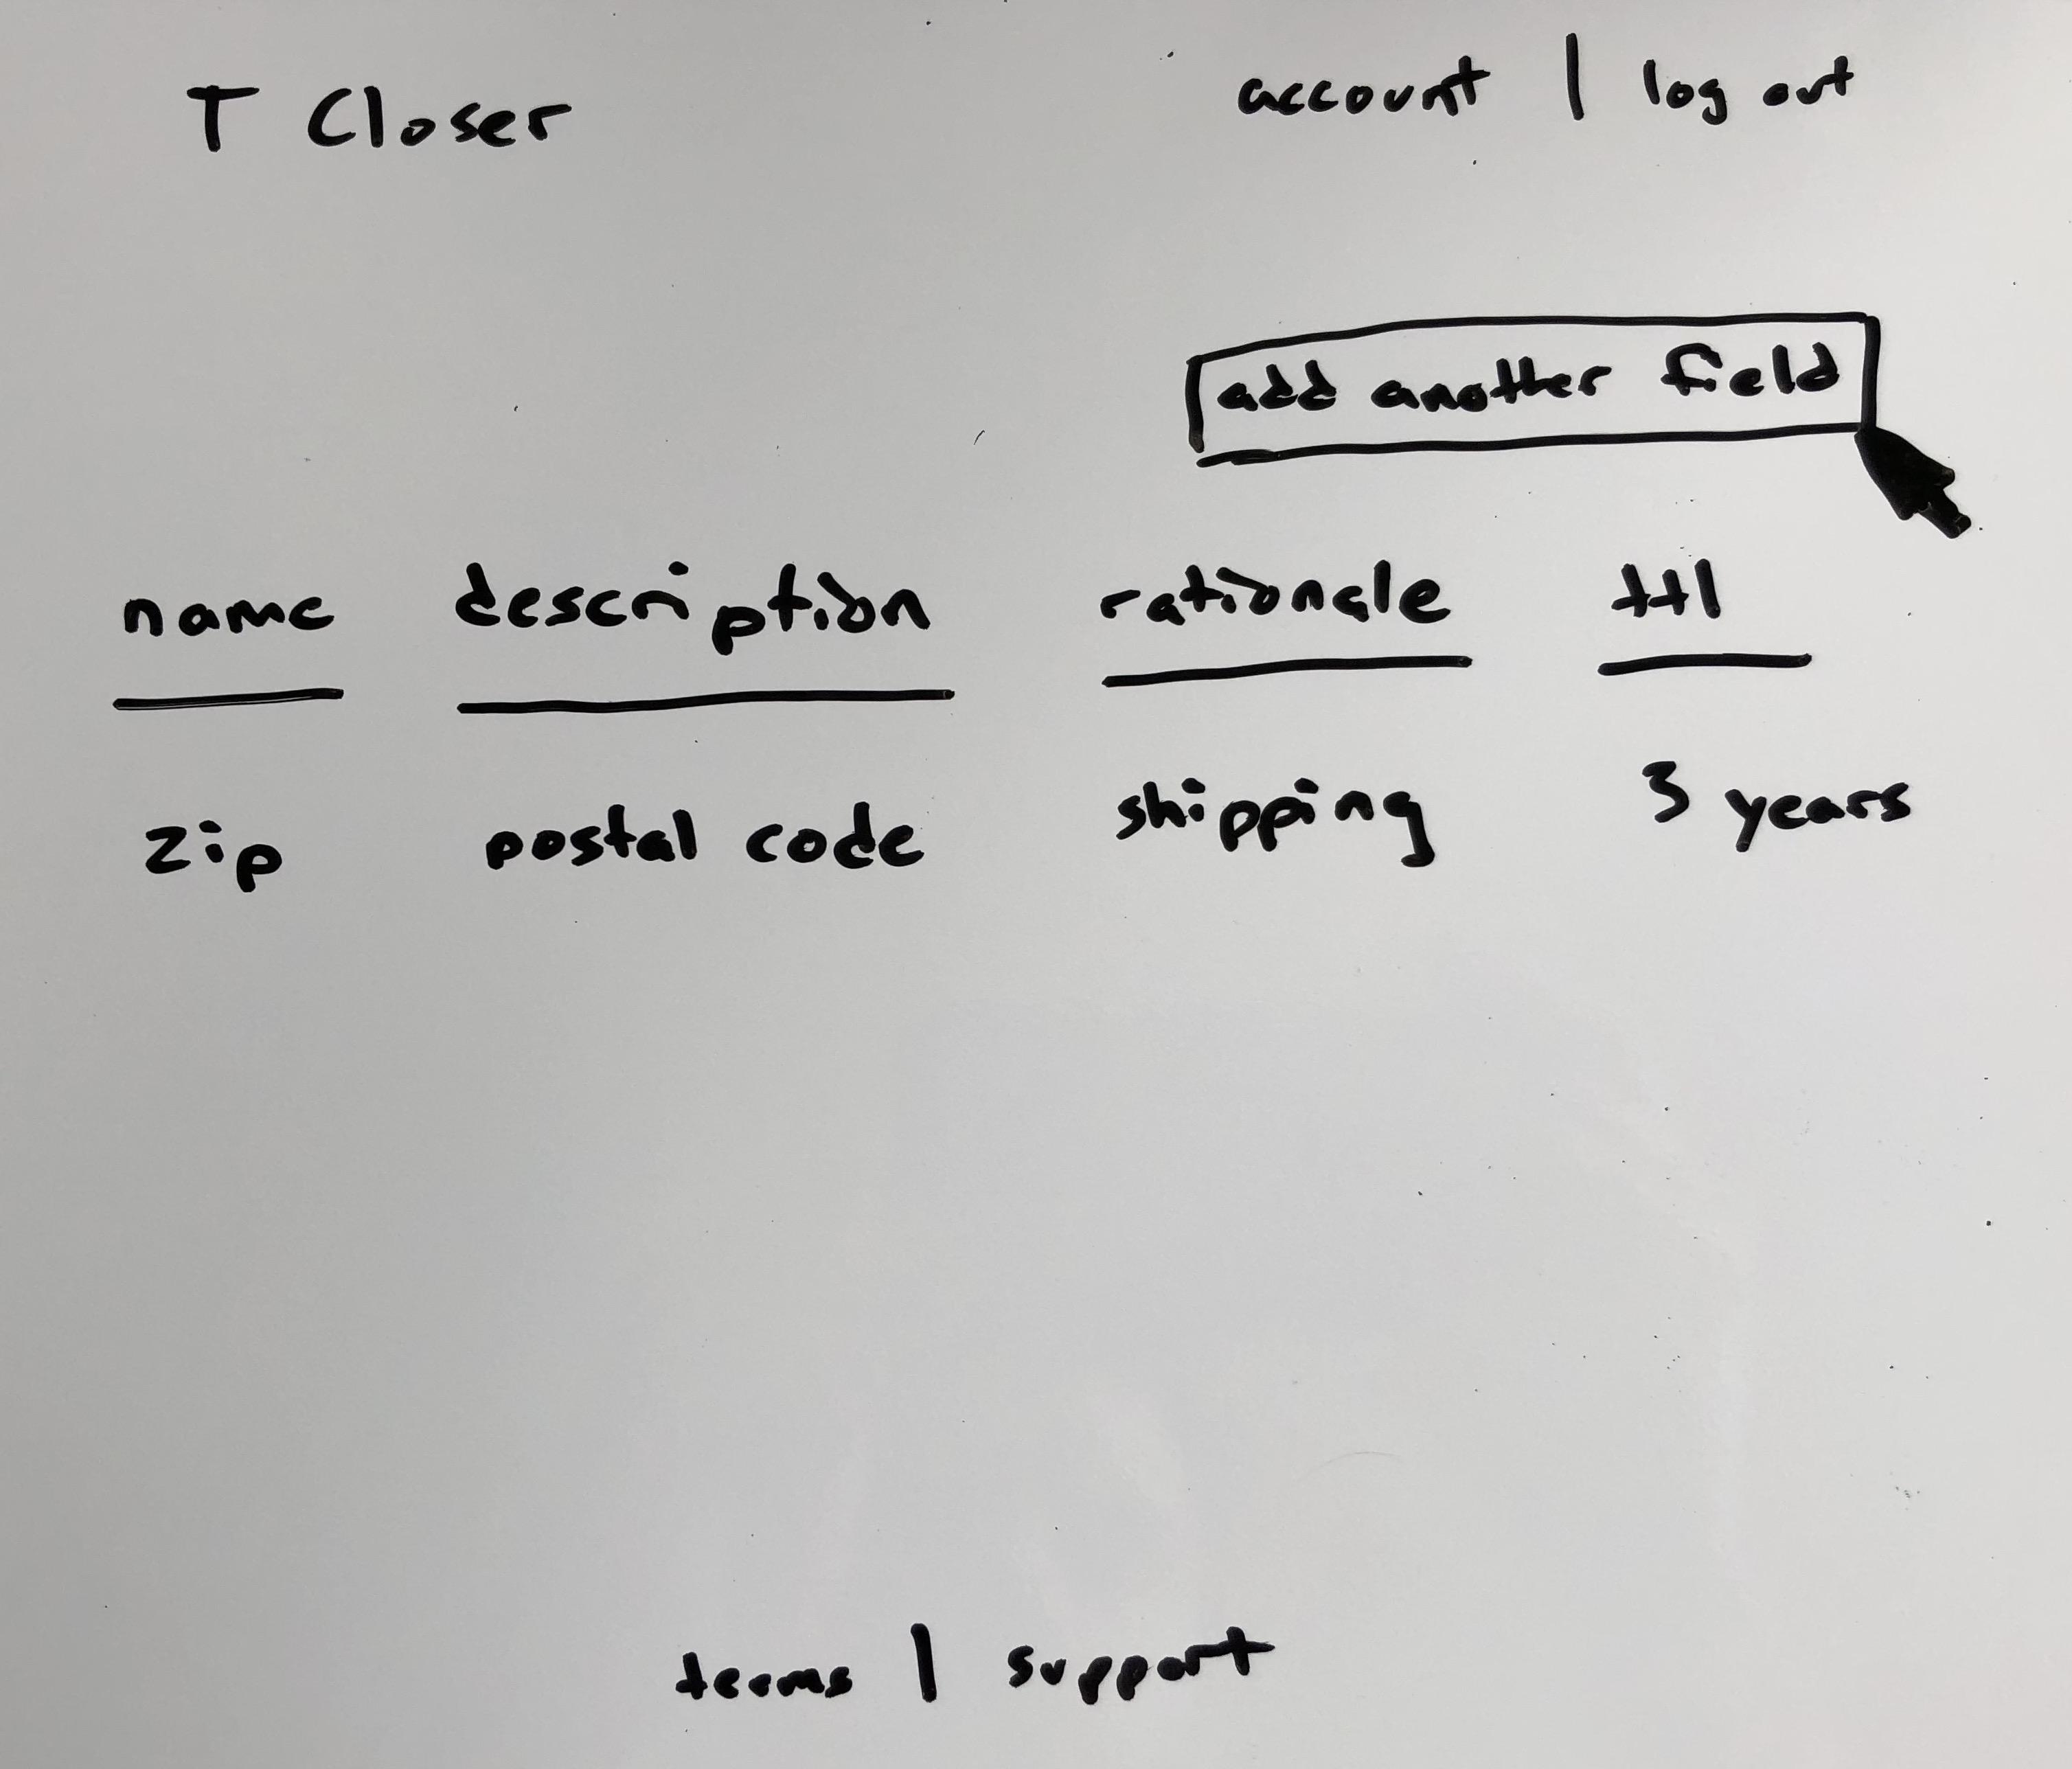 T Closer
account | log out
add another field
name description rationale ttl
zip postal code shipping 3 years
terms | support